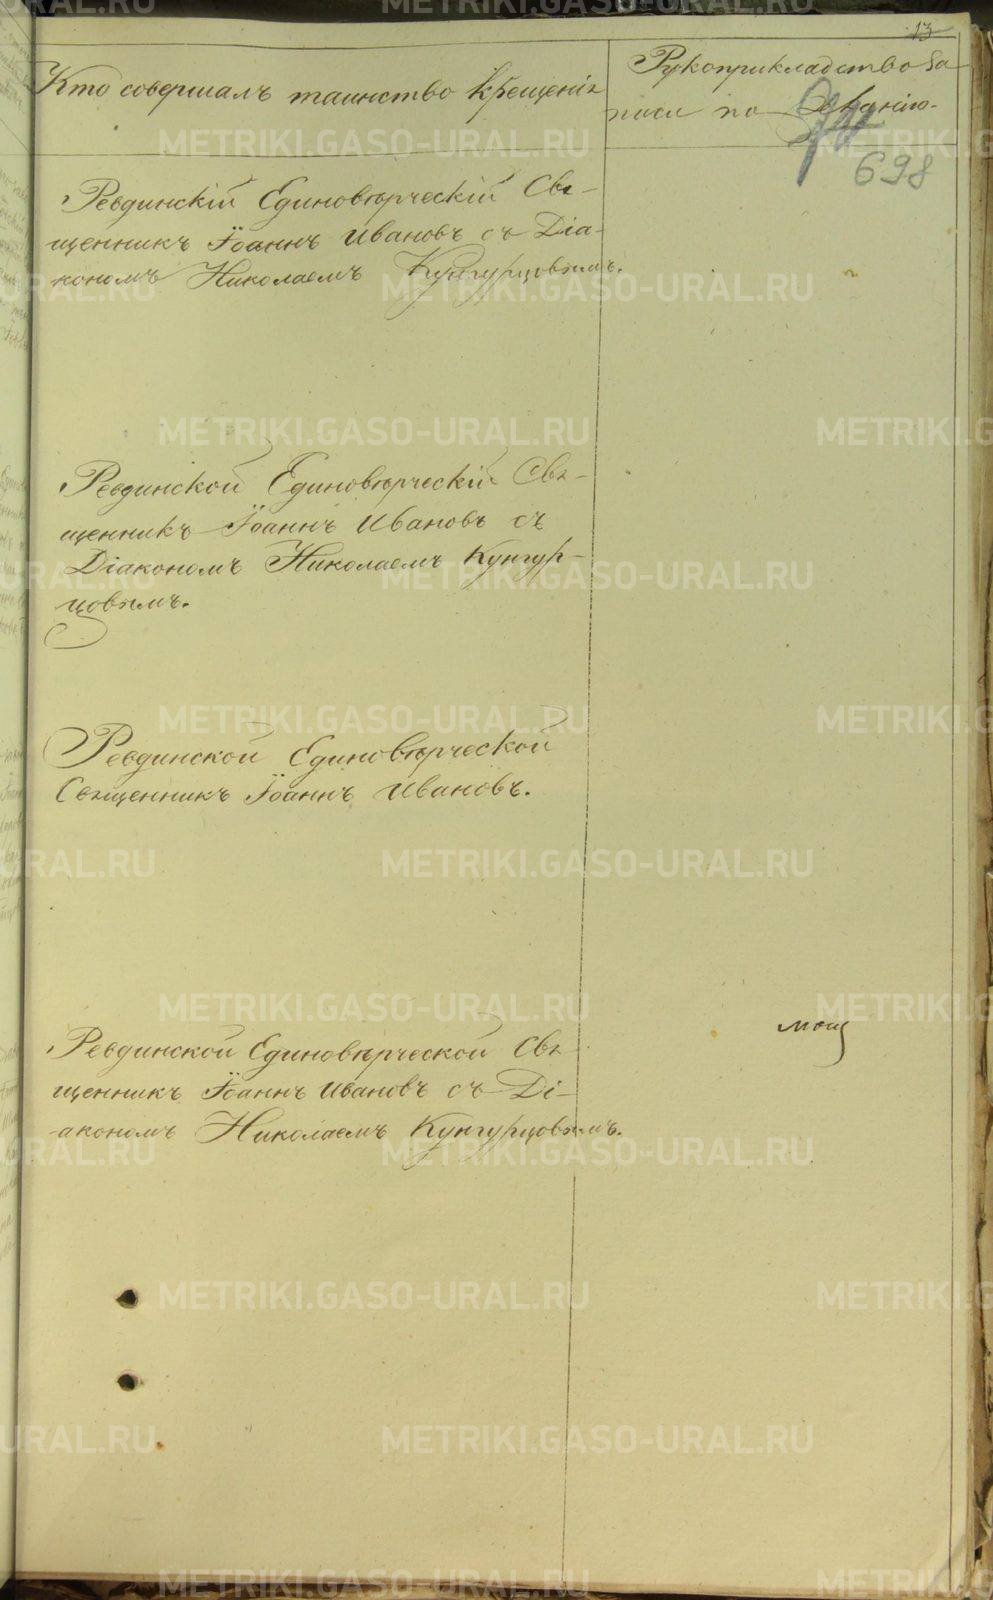 13
Кто совершалъ таинство крещенія
Рукоприкладство За
писи по желанію.
698
Ревдинскій Единовѣрческій Свя-
щенникъ Іоаннъ Ивановъ съ Діа-
кономъ Николаемъ Кунгурцовымъ.
Ревдинской Единовѣрческій Свя-
щенникъ Іоаннъ Ивановъ съ
Діакономъ Николаемъ Кунгур-
цовымъ.
Ревдинской Единовѣрческой
Священникъ Іоаннъ Ивановъ.
Ревдинской Единовѣрческой Свя-
щенникъ Іоаннъ Ивановъ съ Ді-
акономъ Николаемъ Кунгурцовымъ.
METRIKI.GASO-URAL.RU